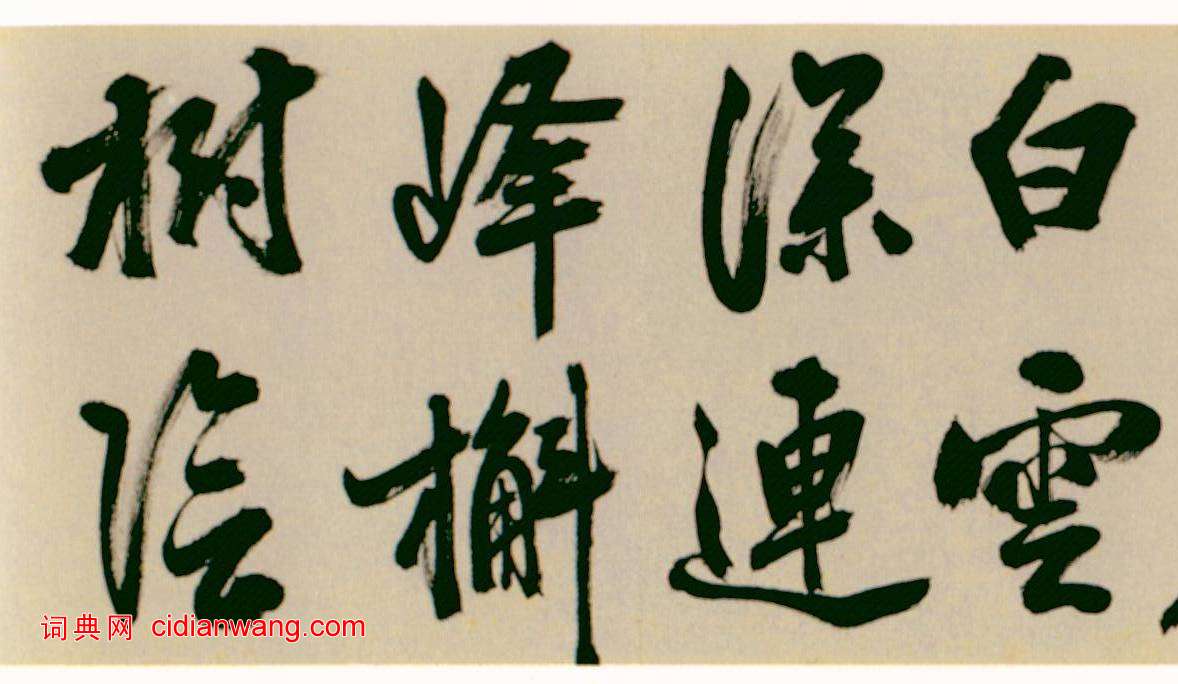 白雲
深連
峰槲
樹陰
词典网 cidianwang.com